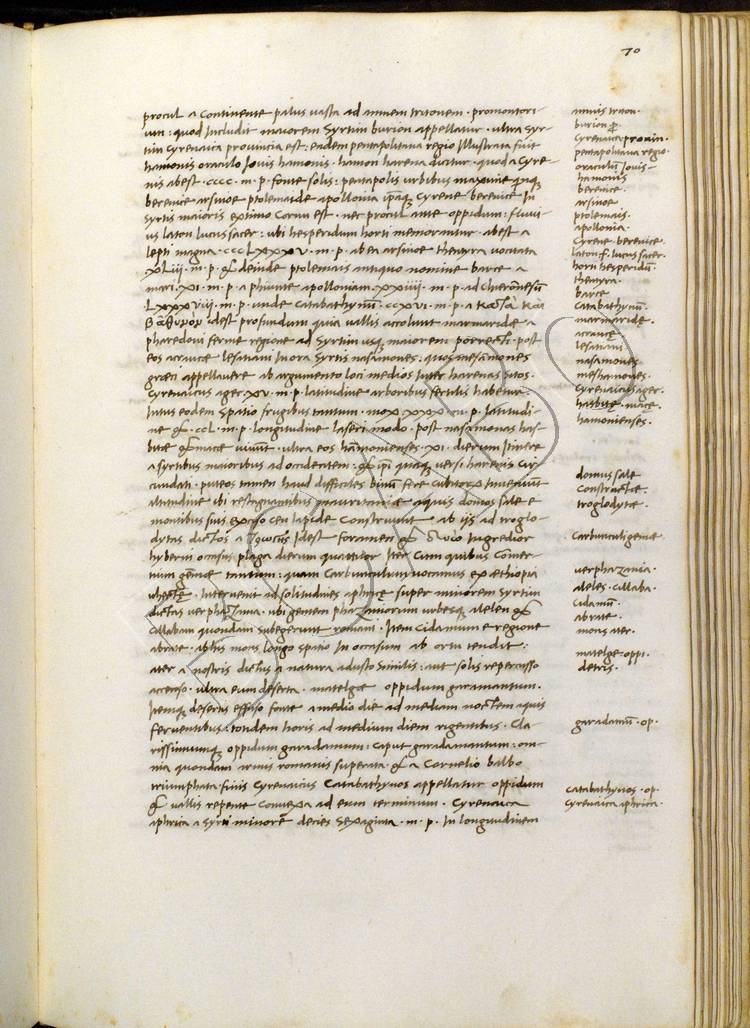 70
procul a Continente palus vasta ad amnem tritonem . promontori-
um : quod Includit maiorem Syrtim burion appellatur . ultra Syr-
tim Cyrenaica prouincia est : eadem pentapolitana regio Illustrata fuit
hamonis oraculo Iouis hamonis . hamon harena dicitur . quod a Cyre-
nis abest . CCCC . m . p . fonte solis : pentapolis urbibus maxime quinq;
berenice arsinoe ptolemaide apollonia ipaq; Cyrene berenice In
Syrtis maioris extimo Cornu est . nec procul ante oppidum : fluui-
us laton lucus sacer : ubi hesperidum horti memorantur . abest a
lepti magna . CCCLXXXV . m . p . ab ea arsinoe theuchyra uocitata
XLiij . m . p . & deinde ptolemais antiquo nomine barce a
mari . XI . m . p . a phiunte apolloniam . XXiiij . m . p . ad Chersonesum
LXXXViij . m . p . unde Catabathmum . CCXVI . m . p . a κατα και
βαθυρον idest profundum quia uallis accolunt marmaridæ a
pharedoni ferme regione ad Syrtim usq; maiorem porrecti . post
eos acrauce lesatani In ora Syrtis nasamones . quos mesamones
græci appellauere ab argumento loci medios Inter harenas sitos .
Cyrenaicus ager . XV . m . p . latitudine arboribus fertilis habetur .
Intus eodem spatio frugibus tantum . mox XXXX m . p . latitudi-
ne & . CCL . m . p . longitudine laseri modo . post nasamonas has-
bitæ & macæ uiuunt . ultra eos hammonienses . XI . dierum Itinere
a syrtibus maioribus ad occidentem : & ipi quaq; uersi harenis Cir
cundati . puteos tamen haud difficiles binum fere Cubitorum Inueniunt
altitudine ibi restagnantibus mauritaniæ aquis domos sale e
montibus suis exciso Ceu lapide Construunt ab iis ad troglo-
dytas
hyberni occasus plaga dierum quattuor Iter Cum quibus Comer-
tium gemmæ tantum : quam Carbunculum uocamus ex æthiopia
uhectę . Interuenit ad solitudines aphricę super minorem Syrtim
dictas uerphazania . ubi gentem phazaniorum urbesq; alelen &
Cillabam quondam subegerunt romani . Item Cidamum e regione
abrate . ab his mons longo spatio In occasum ab ortu tendit :
ater a nostris dictus a natura adusto similis : aut solis repercusso
accenso . ultra eum deserta . matelgæ oppidum garamantum .
Itemq; desertis effuso fonte a medio die ad mediam noctem aquis
feruentibus : totidem horis ad medium diem rigentibus . Cla-
rissimumq; oppidum garadamum : Caput garadamantum : om-
nia quondam armis romanis superata . & a Cornelio balbo
triumphata . finis Cyrenaicus Catabathmos appellatur oppidum
& uallis repente Conuexa ad eum terminum . Cyrenaica
aphrica a Syrti minorē decies Sexaginta . m . p . In longitudinem
amnis triton .
burion
Cyrenaica prouin .
pentapolitana regio
oraculū Iouis-
hamonis
berenice .
arsinoe
ptolemais .
apollonia .
Cyrene . berenice .
laton f. lucus sacer .
horti hesperidū
theucyra .
barce
Catabathmū .
marmaridę .
acraucę
lesatani
nasamones
meshamones .
Cyrenaicus ager .
hasbitę . macæ .
hamonienses .
domus sale
Constructæ
troglodytæ .
Carbunculi gemæ
uerphazania .
aleles . Cillaba .
Cidamū .
abrate .
mons ater .
matelge . oppi .
detris .
garadamū . op .
Catabathmos . op .
Cyrenaica aphrica .